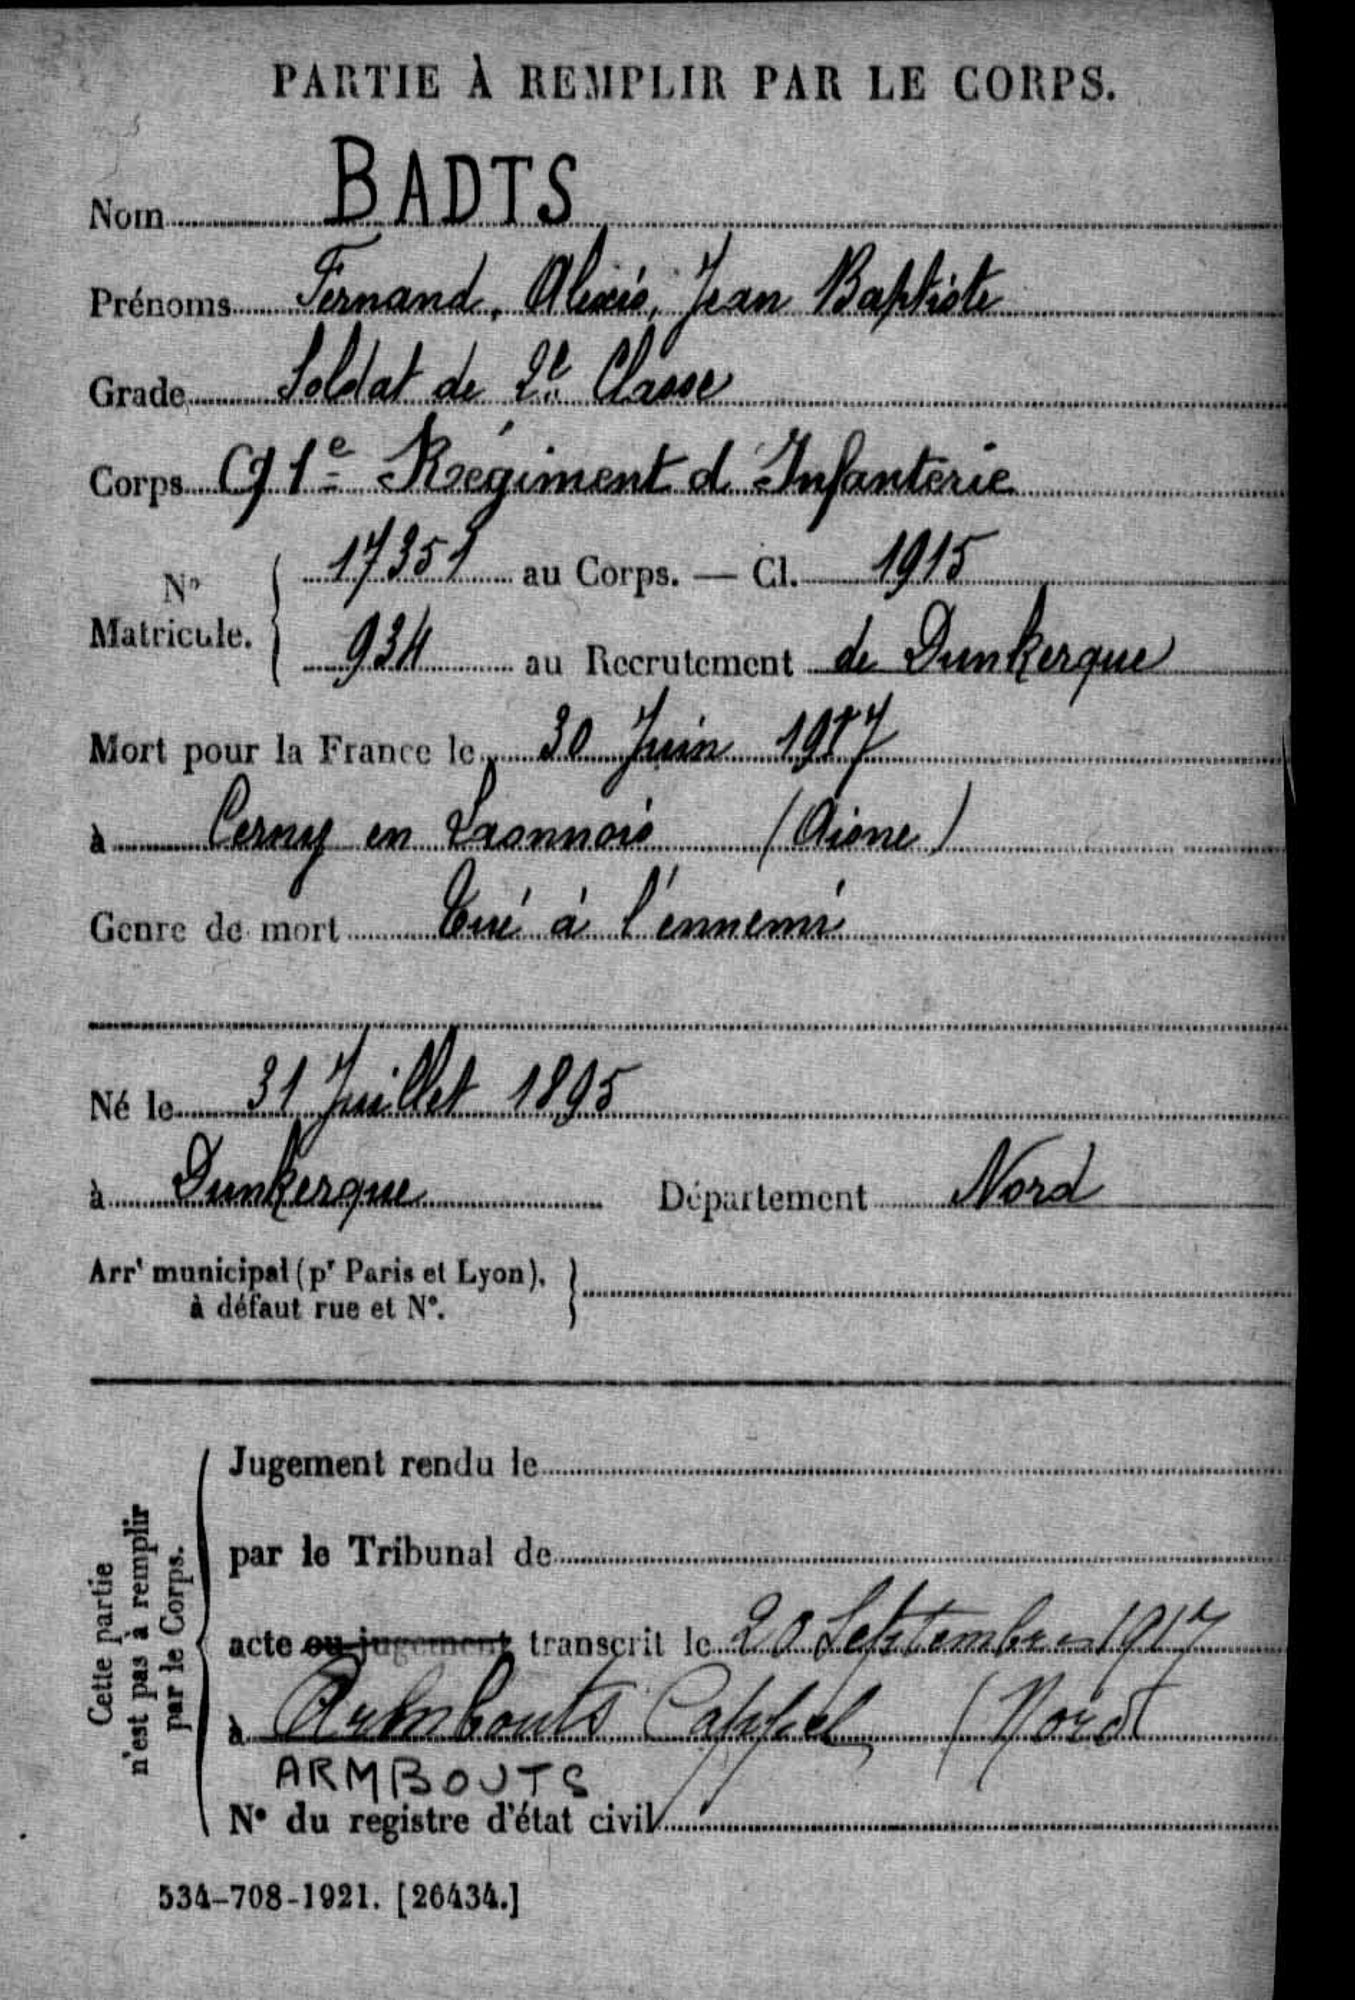 PARTIE À REMPLIR PAR LE CORPS.
Nom BADTS
Prénoms Fernand, Alexis, Jean Baptiste
Grade Soldat de 2e Classe
Corps 91e Régiment d Infanterie
No Matricule. { 17351 au Corps. — Cl. 1915
934 au Recrutement de Dunkerque
Mort pour la France le 30 Juin 1917
à Cerny en Laonnois (Aisne)
Genre de mort Tué à l'ennemi
Né le 31 Juillet 1895
à Dunkerque Département Nord
Arrt municipal (pr Paris et Lyon), }
à défaut rue et N°.
Cette partie
n'est pas à remplir
par le Corps.
Jugement rendu le
par le Tribunal de
acte ou jugement transcrit le 20 Septembre 1917
à Armbouts Cappel (Nord
ARMBOUTS
N° du registre d'état civil
534-708-1921. [26434.]